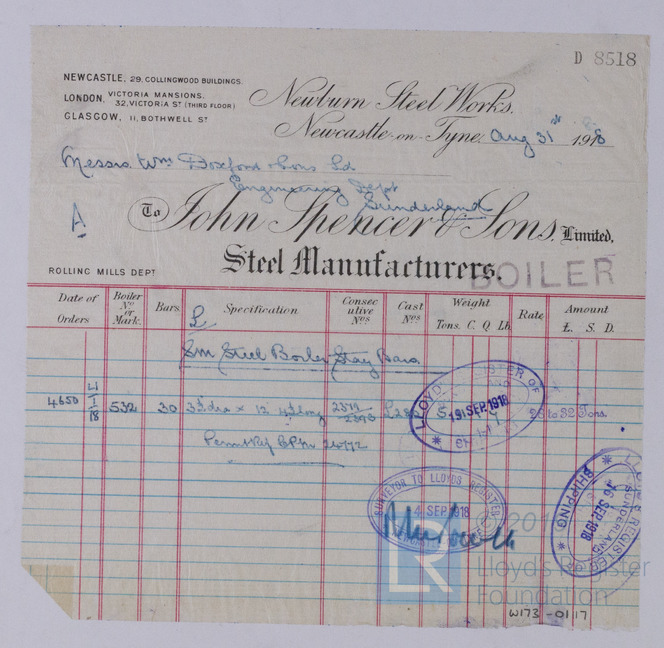 D 8518
NEWCASTLE, 29, COLLINGWOOD BUILDINGS.
LONDON, VICTORIA MANSIONS, 32, VICTORIA ST (THIRD FLOOR)
GLASGOW, 11, BOTHWELL ST
Newburn Steel Works.
Newcastle-on-Tyne, Aug 31st 1918
Messrs Wm Doxford & Sons Ld
Engineering Dept
Sunderland
A
To John Spencer & Sons, Limited,
Steel Manufacturers.
BOILER
ROLLING MILLS DEPT
Date of Orders Boiler No or Mark. Bars Specification Consecutive Nos Cast Nos Weight Tons. C. Q. Lb. Rate Amount £. S. D.
L
SM Steel Boiler Stay Bars
4650 4/1/18 532 30 3" dia x 12 long 5 28 to 32 Tons
Permit Ref
LLOYD'S REGISTER OF
19 SEP. 1918
SURVEYOR TO LLOYDS REGISTER
4 SEP. 1918
LLOYD'S REGISTER OF SHIPPING
16 SEP 1918
SUNDERLAND
LR
Lloyd's Register
Foundation
W173-0117